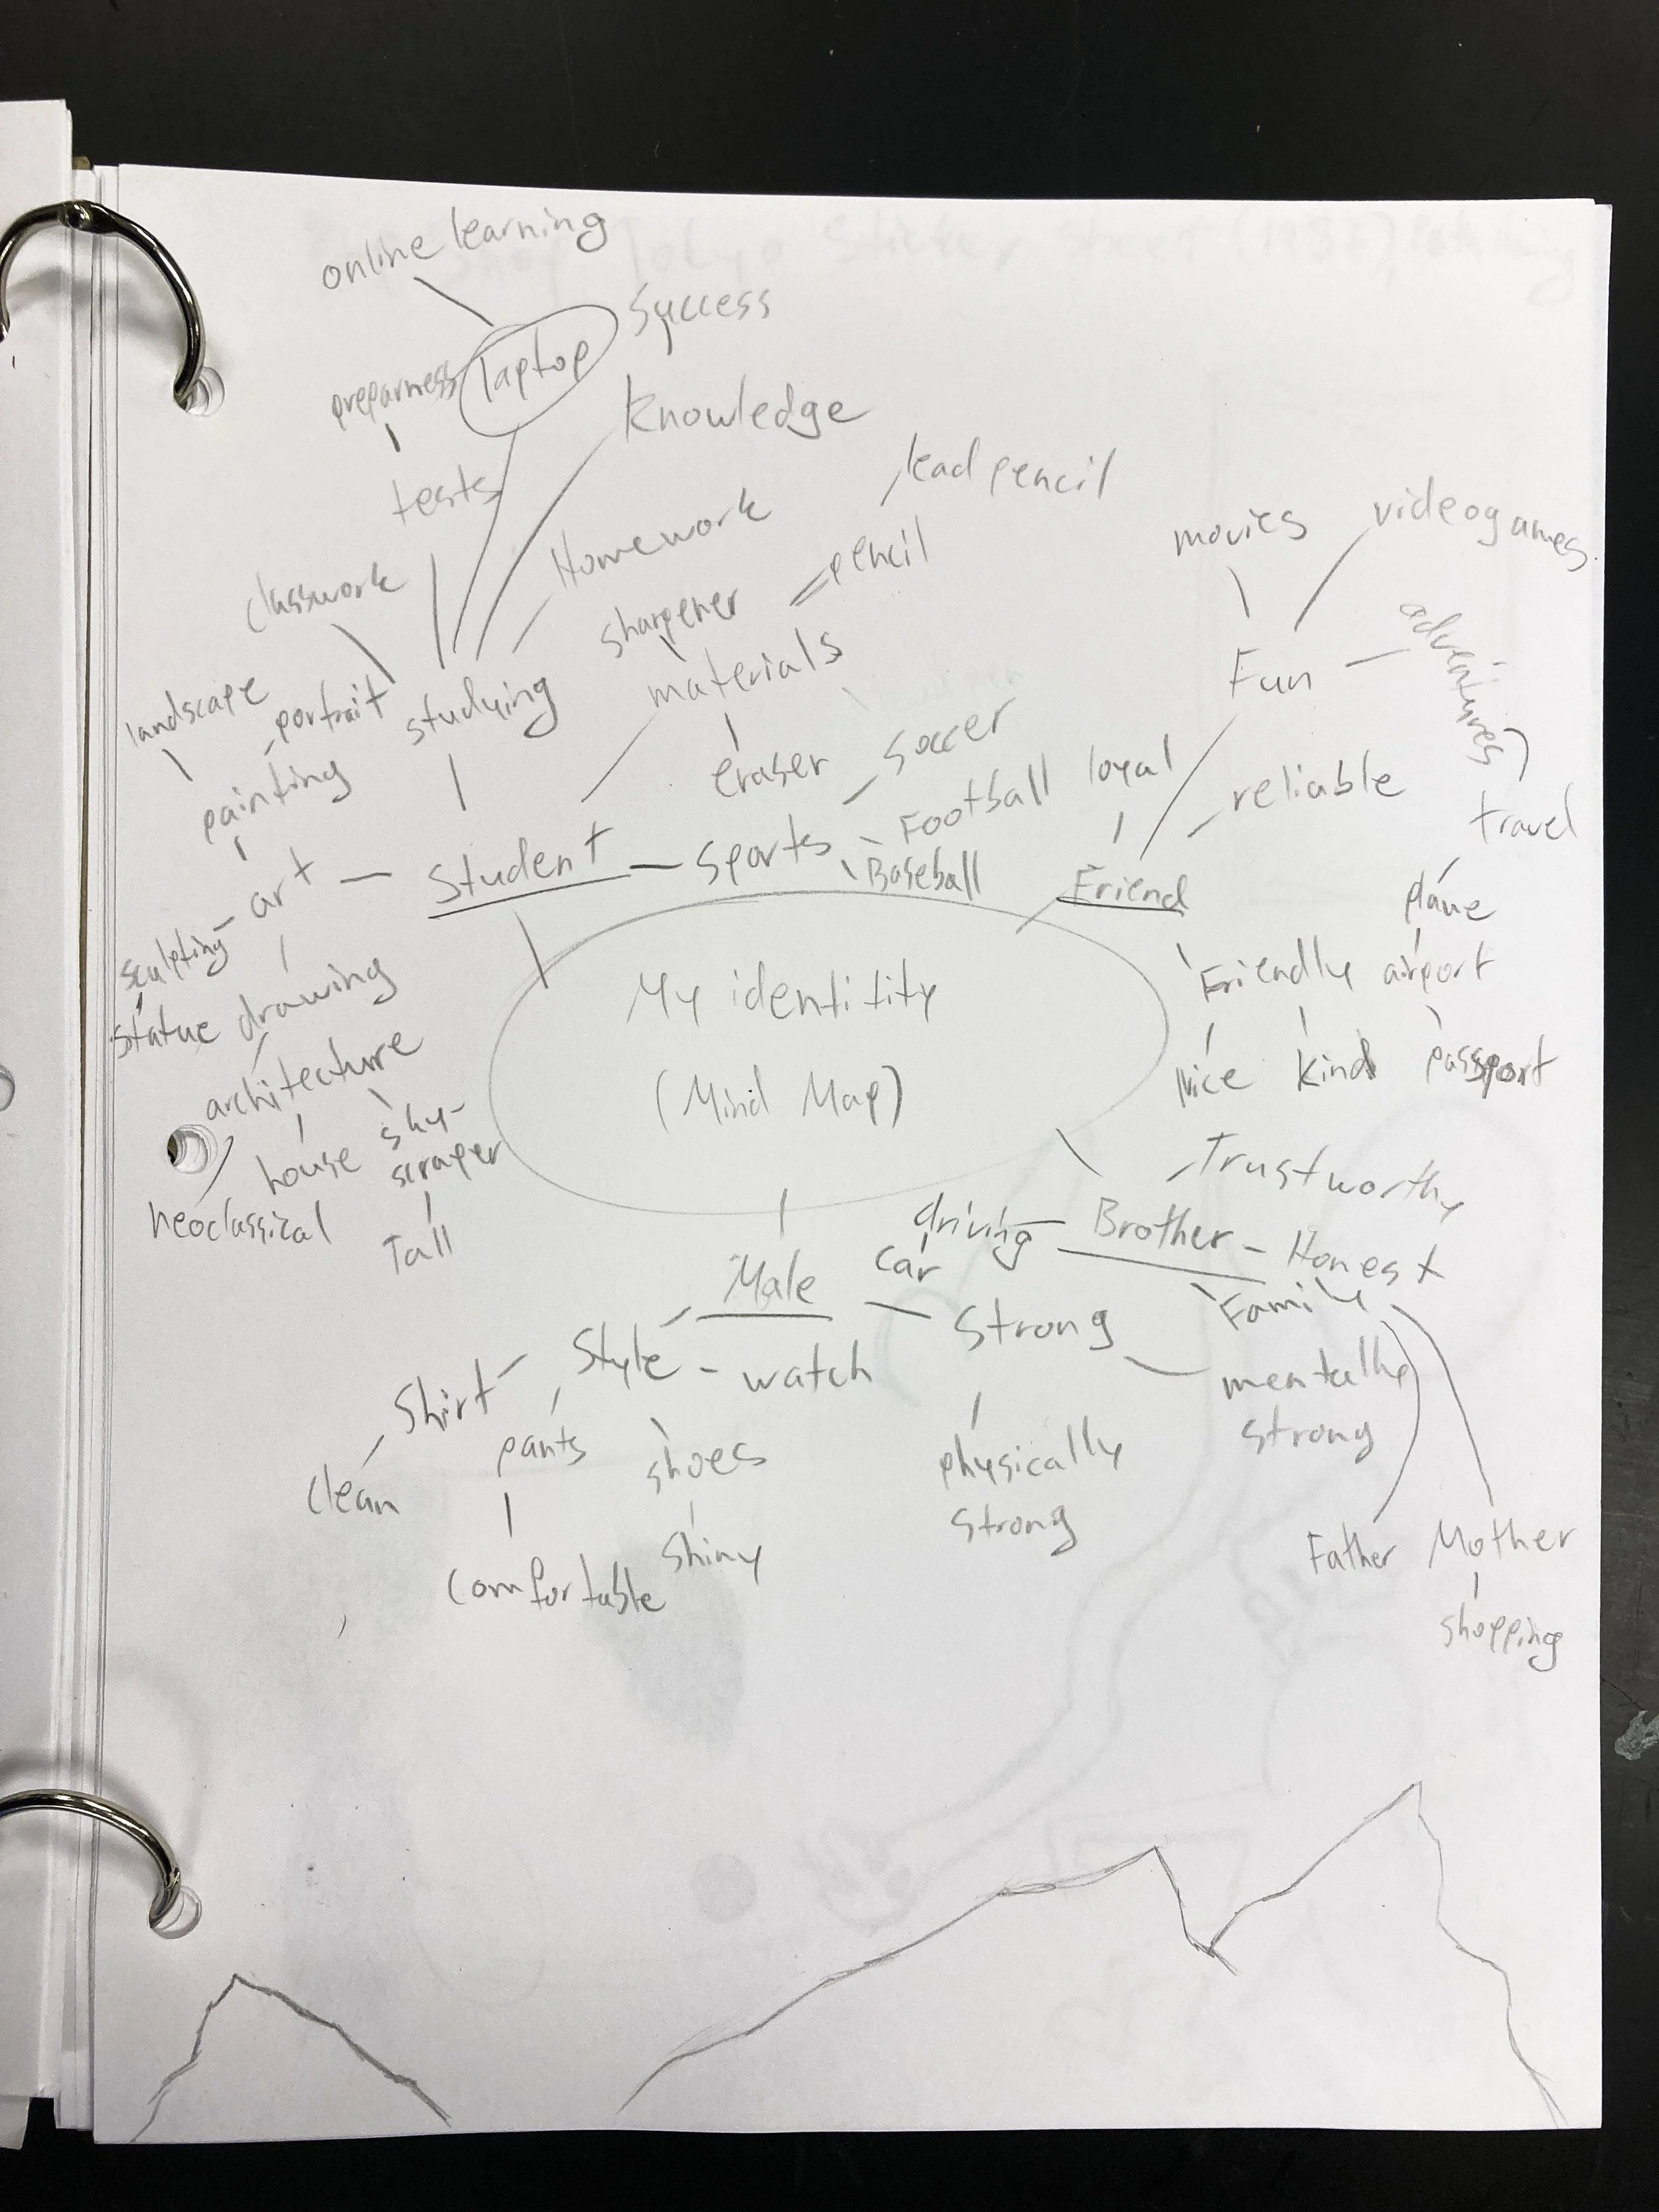 online learning
Success
preparness
laptop
Knowledge
tests
lead pencil
Homework
pencil
movies
videogames
classwork
sharpener
adventures
landscape
portrait
studying
materials
Fun
painting
eraser
soccer
loyal
reliable
travel
Football
art
Student
Sports
Baseball
Friend
plane
sculpting
Friendly
airport
statue
drawing
My identitity
nice
kind
passport
architecture
(Mind Map)
house
sky-
scraper
Trustworthy
neoclassical
Tall
driving
Brother
Honest
Male
car
Family
Style
watch
Strong
Shirt
mentally
strong
pants
shoes
physically
strong
clean
comfortable
shiny
Father
Mother
shopping